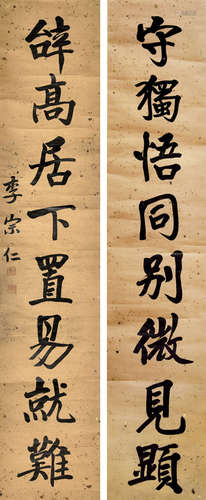 守獨悟同别微見顯
辤高居下置易就難
李宗仁